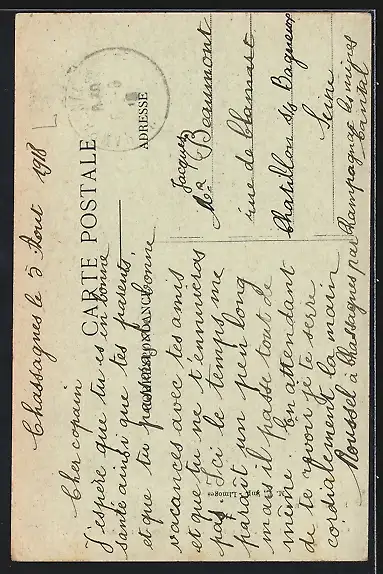 CARTE POSTALE
CORRESPONDANCE
ADRESSE
Chassagnes le 5 Aout 1918
Cher copain
J'espère que tu es en bonne
santé ainsi que tes parents,
et que tu passes de bonne
vacances avec tes amis
et que tu ne t'ennuieras
pas Ici le temps me
paraît un peu long
mais il passe tout de
même. En attendant
de te revoir je te serre
cordialement la main
Roussel à Chassagnes par Champagnac les mines
Cantal
Jacques
Mr Beaumont
rue de Clamart
Chatillon s/s Bagneux
Seine
Imp. - Limoges